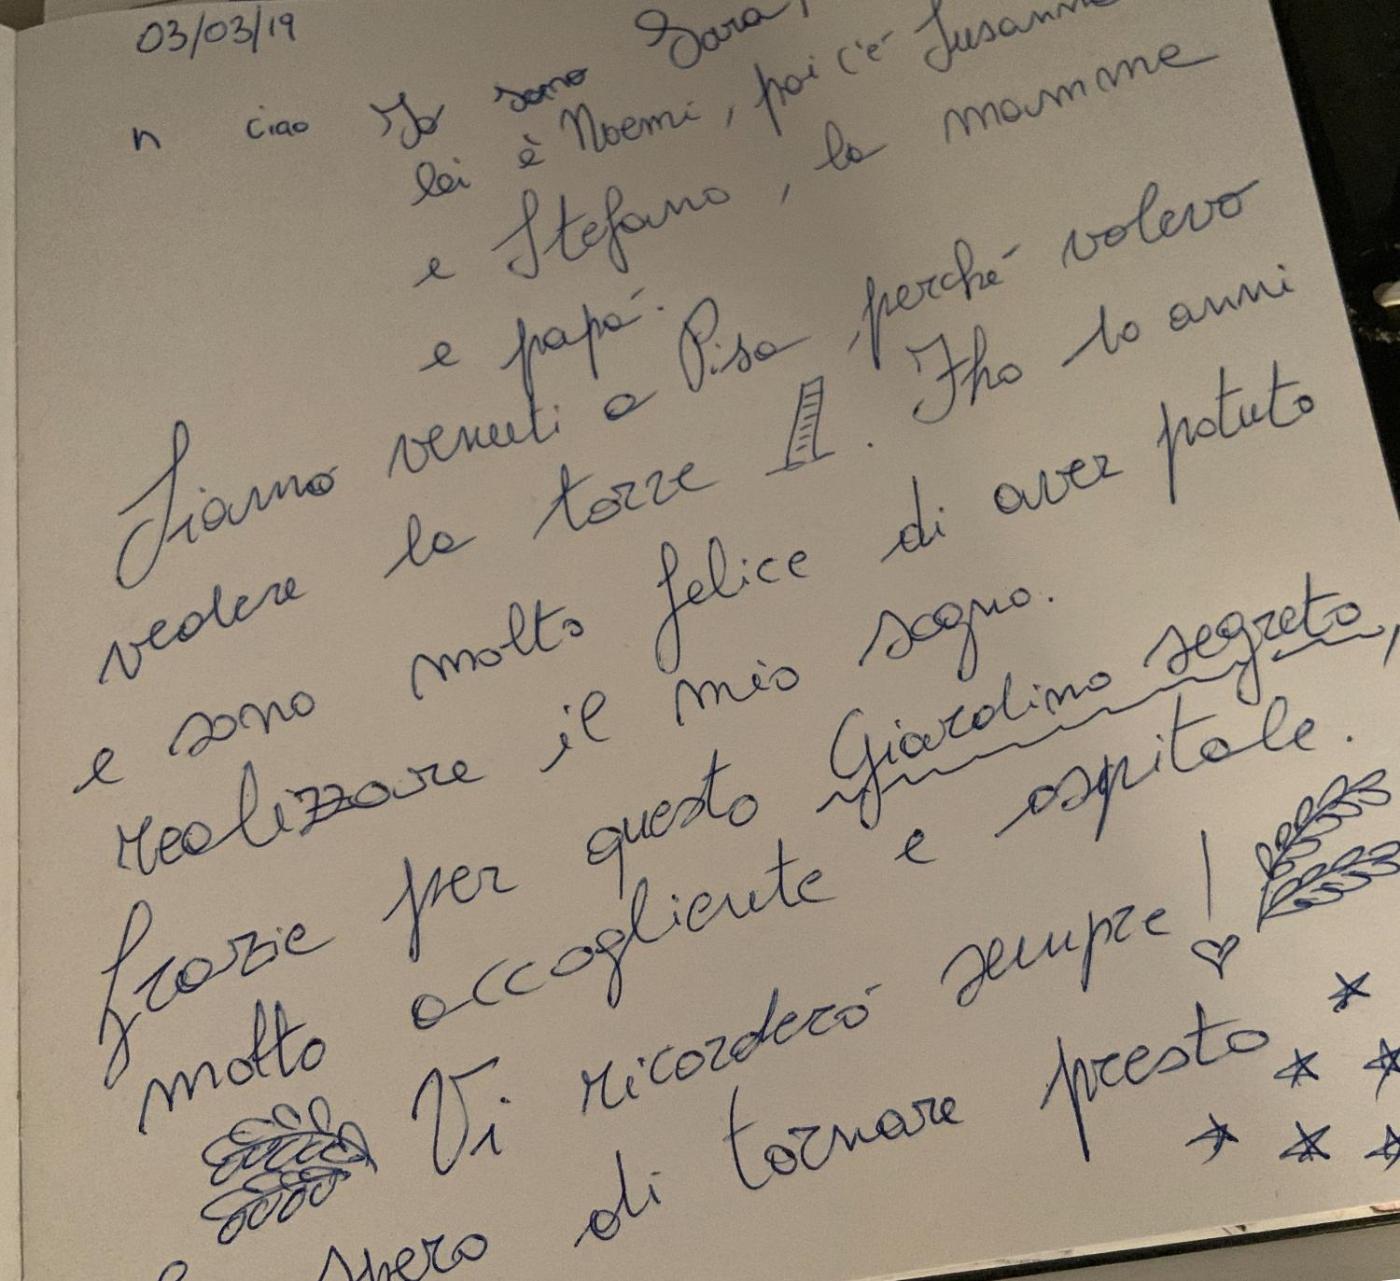 03/03/19
n ciao Io sono Sara,
lei è Noemi, poi c'é Susanna
e Stefano, la mamma
e papá.
Siamo venuti a Pisa, perché volevo
vedere la torre. Io ho 10 anni
e sono molto felice di aver potuto
realizzare il mio sogno.
Grazie per questo Giardino segreto,
molto accogliente e ospitale.
Vi ricorderó sempre!
spero di tornare presto